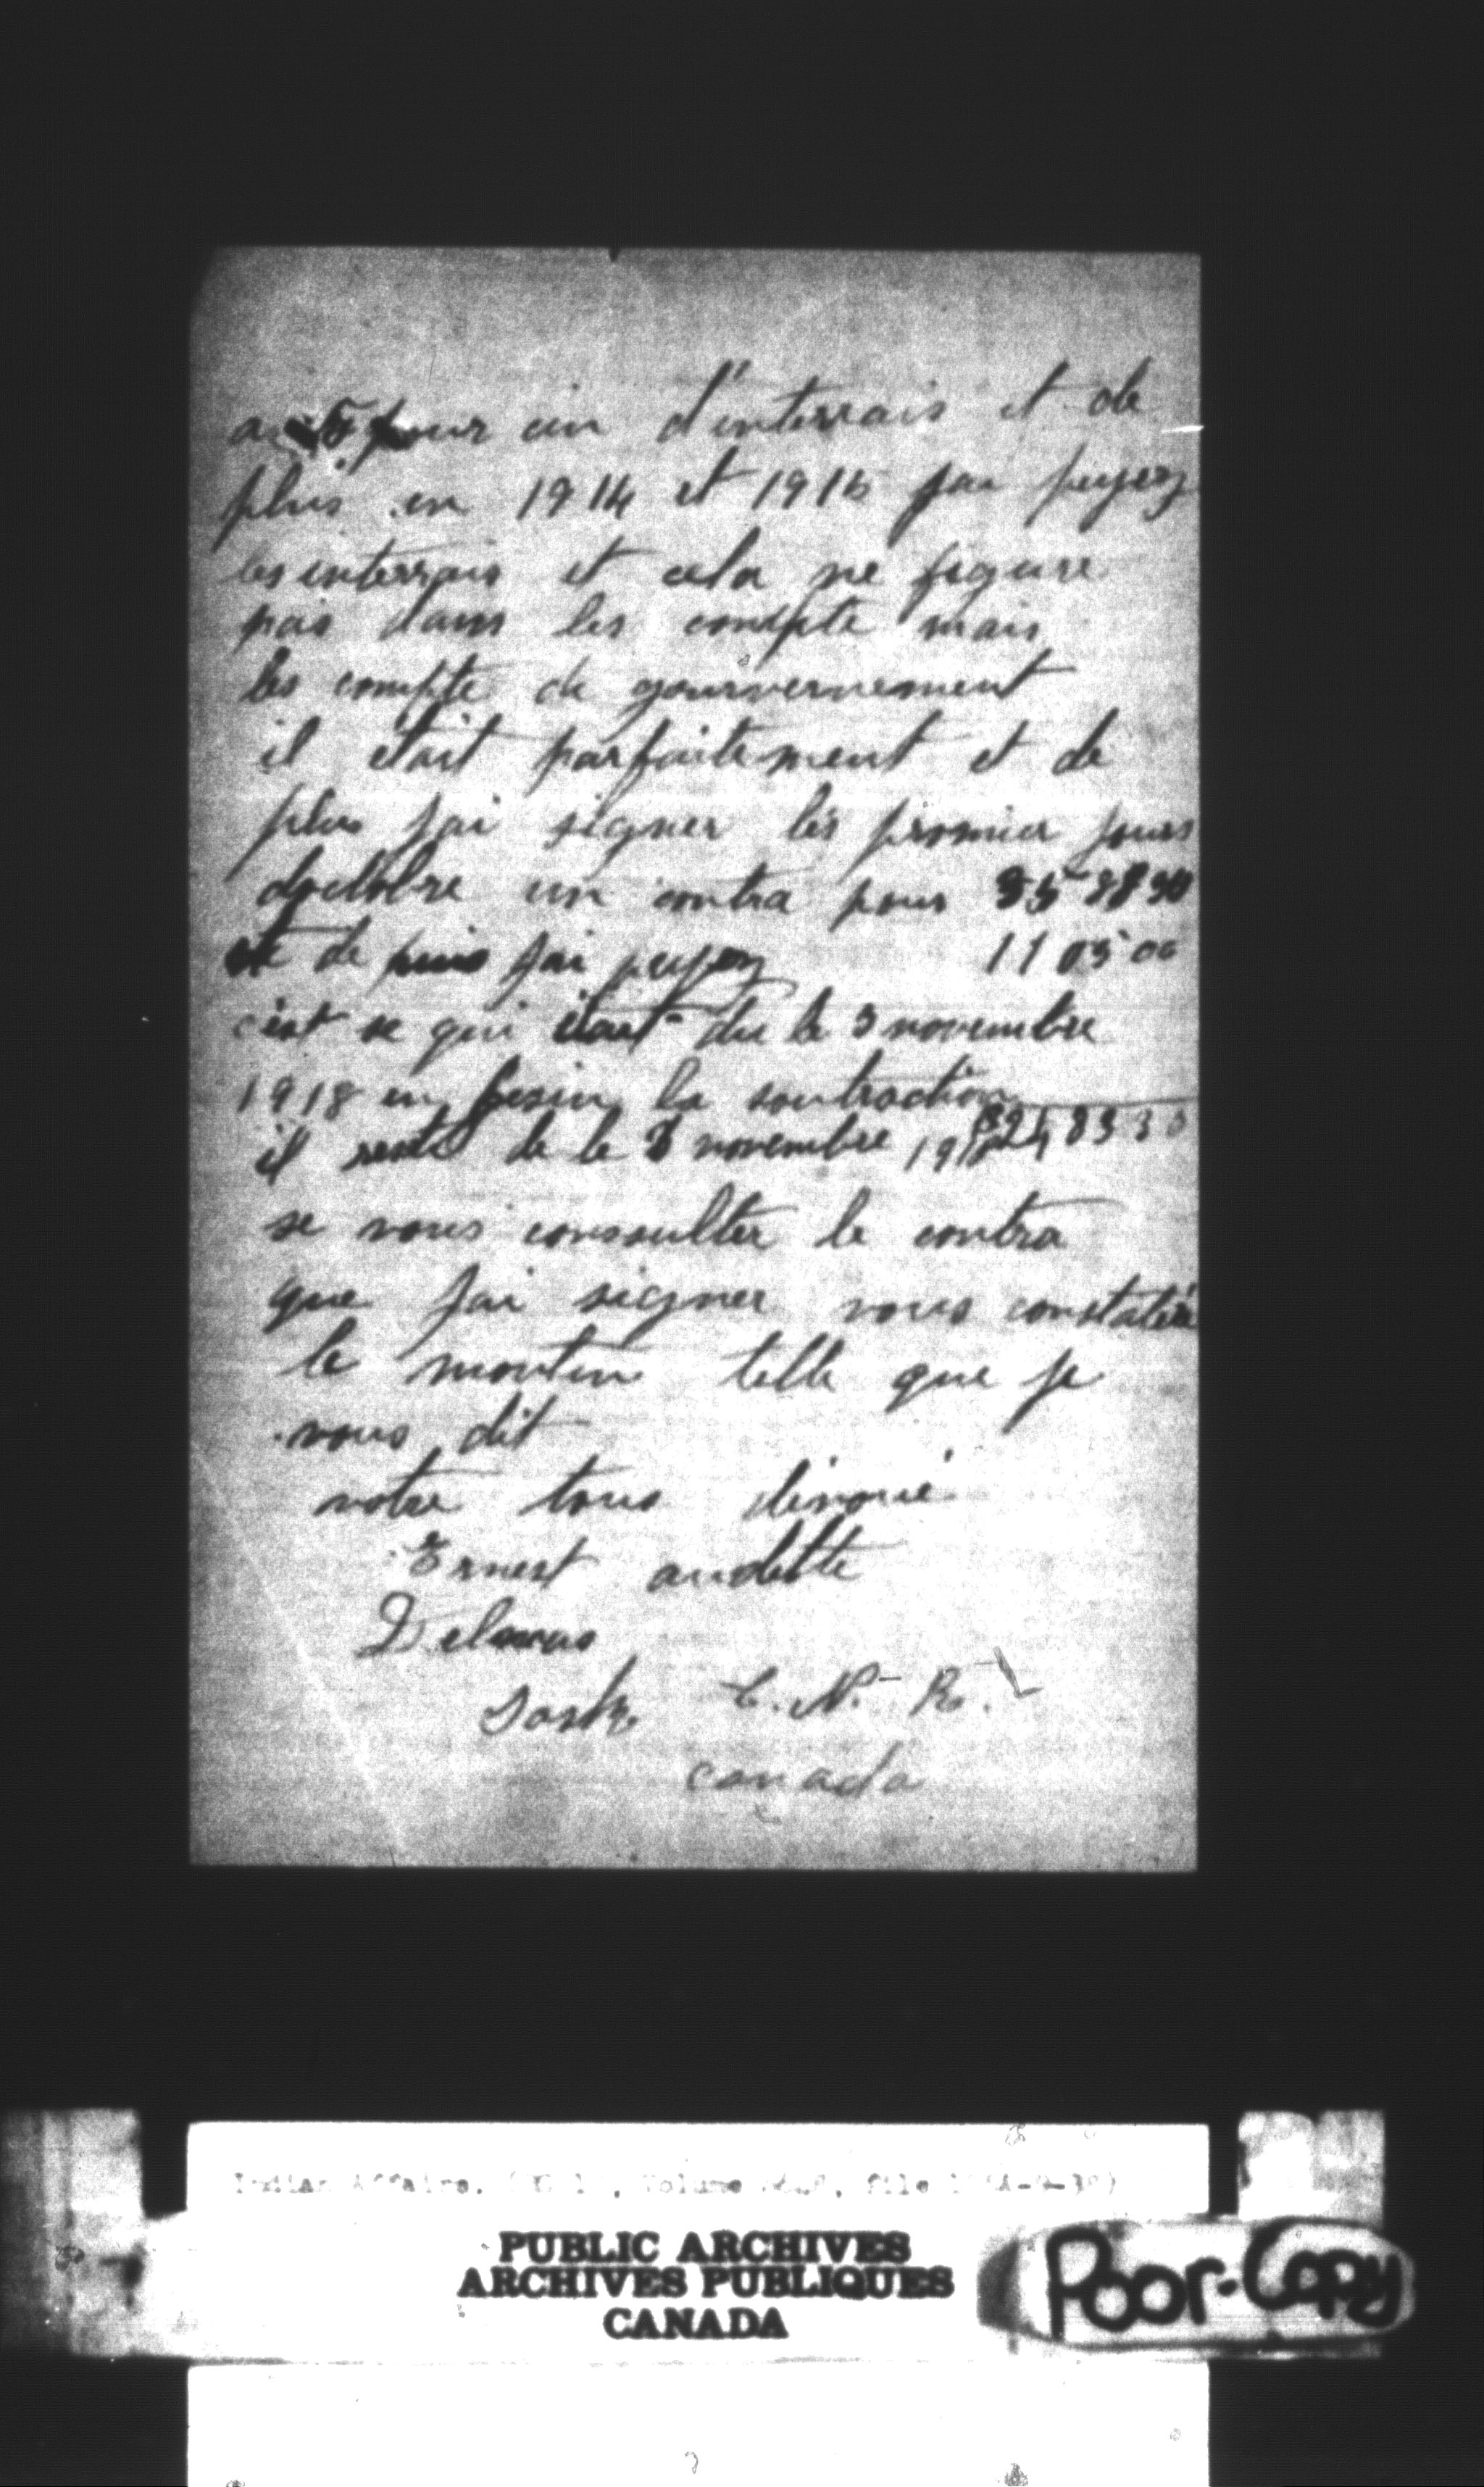 au 5 pour cin d'interrais et de
plus en 1914 et 1915 jai peyez
les interrais et cela ne figure
pas dans les compte mais
les compte de gourvernement
il était parfaitement et de
plus jai signer les premier jours
doctobre un contra pour 35 88 30
et de puis jai peyez 11 05 00
cest se qui était du le 3 novembre
1918 en fesin la soutraction
il reste de le 3 novembre 1918 24 83 30
se vous consulter le contra
que jai signer vous constatéré
le montin telle que je
vous dit
votre tous dévoué
Ernest audette
Delmas
Sask C. N. R.
canada
Indian Affairs. Volume file
PUBLIC ARCHIVES
ARCHIVES PUBLIQUES
CANADA
Poor-Copy